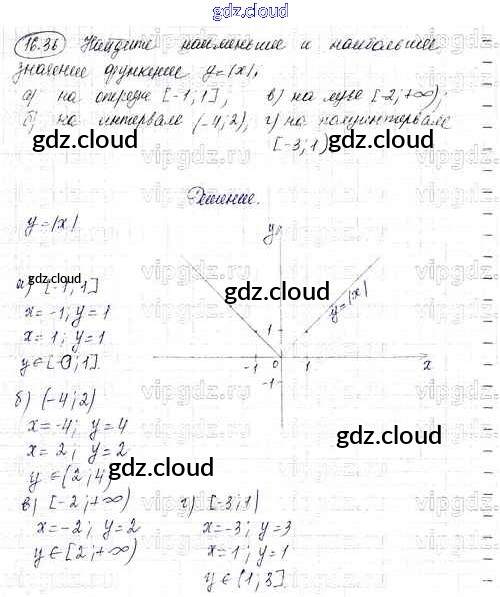 gdz.cloud
16.36 Найдите наименьшее и наибольшее
значение функции y=|x|:
а) на отрезке [-1; 1]; в) на луче [-2; +∞);
б) на интервале (-4; 2); г) на полуинтервале
[-3; 1)
gdz.cloud
gdz.cloud
Решение.
y=|x|
y
gdz.cloud
gdz.cloud
а) [-1; 1]
x=-1; y=1
x=1; y=1
y∈[0; 1].
y=|x|
1
-1 0 1 x
-1
б) (-4; 2)
x=-4; y=4
x=2; y=2
y∈(2; 4)
gdz.cloud
gdz.cloud
в) [-2; +∞) г) [-3; 1)
x=-2; y=2 x=-3; y=3
y∈[2; +∞) x=1; y=1
y∈(1; 3].
gdz.cloud
gdz.cloud